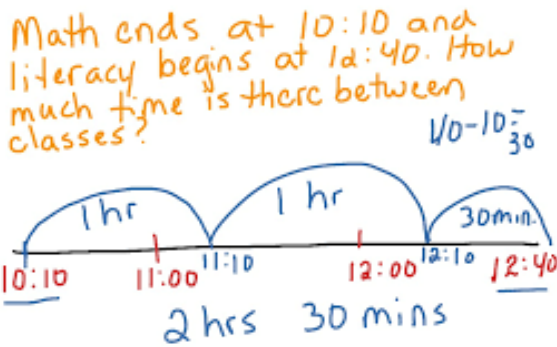 Math ends at 10:10 and
literacy begins at 12:40. How
much time is there between
classes?
40-10=
30
1 hr
1 hr
30min.
10:10
11:00
11:10
12:00
12:10
12:40
2 hrs 30 mins